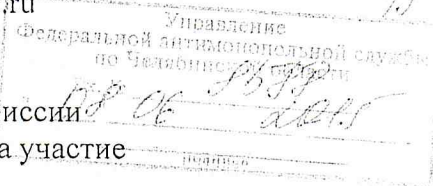 .ru
Управление
Федеральной антимонопольной службы
по Челябинской области
8577
08 06
иссии
а участие
подпись